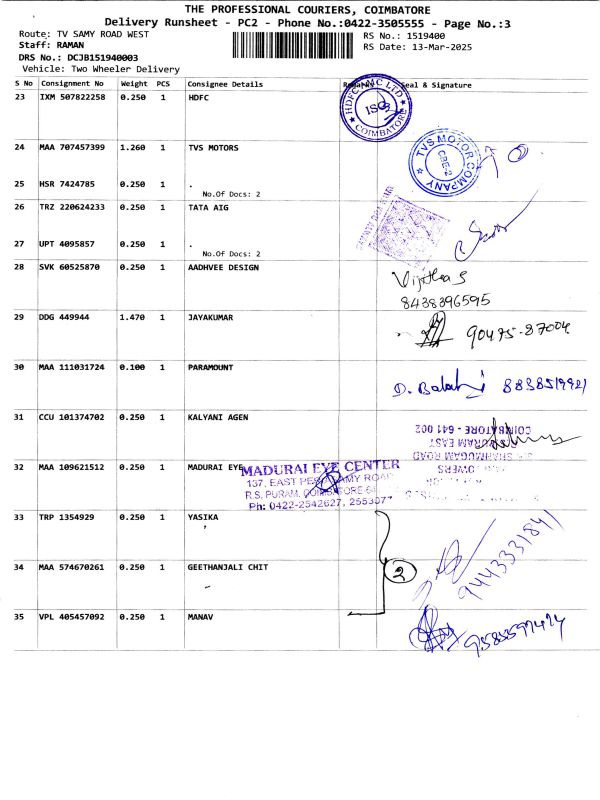 THE PROFESSIONAL COURIERS, COIMBATORE
Delivery Runsheet - PC2 - Phone No.:0422-3505555 - Page No.:3
Route: TV SAMY ROAD WEST
RS No.: 1519400
Staff: RAMAN
RS Date: 13-Mar-2025
DRS No.: DCJB151940003
Vehicle: Two Wheeler Delivery
S No Consignment No Weight PCS Consignee Details Seal & Signature
23 IXM 507822258 0.250 1 HDFC
HDFC AMC LTD
ISC
COIMBATORE
24 MAA 707457399 1.260 1 TVS MOTORS
TVS MOTOR COMPANY
CBE-2
25 HSR 7424785 0.250 1 .
No.Of Docs: 2
26 TRZ 220624233 0.250 1 TATA AIG
27 UPT 4095857 0.250 1 .
No.Of Docs: 2
28 SVK 60525870 0.250 1 AADHVEE DESIGN
8438396595
29 DDG 449944 1.470 1 JAYAKUMAR
90475-87004
30 MAA 111031724 0.100 1 PARAMOUNT
D. Balaji
31 CCU 101374702 0.250 1 KALYANI AGEN
COIMBATORE - 641 002
SHANMUGAM ROAD
32 MAA 109621512 0.250 1 MADURAI EYE
MADURAI EYE CENTER
137, EAST PERIASAMY ROAD
R.S. PURAM, COIMBATORE-641
Ph: 0422-2542627, 2553077
33 TRP 1354929 0.250 1 YASIKA
2
9443331841
34 MAA 574670261 0.250 1 GEETHANJALI CHIT
35 VPL 405457092 0.250 1 MANAV
9585597474